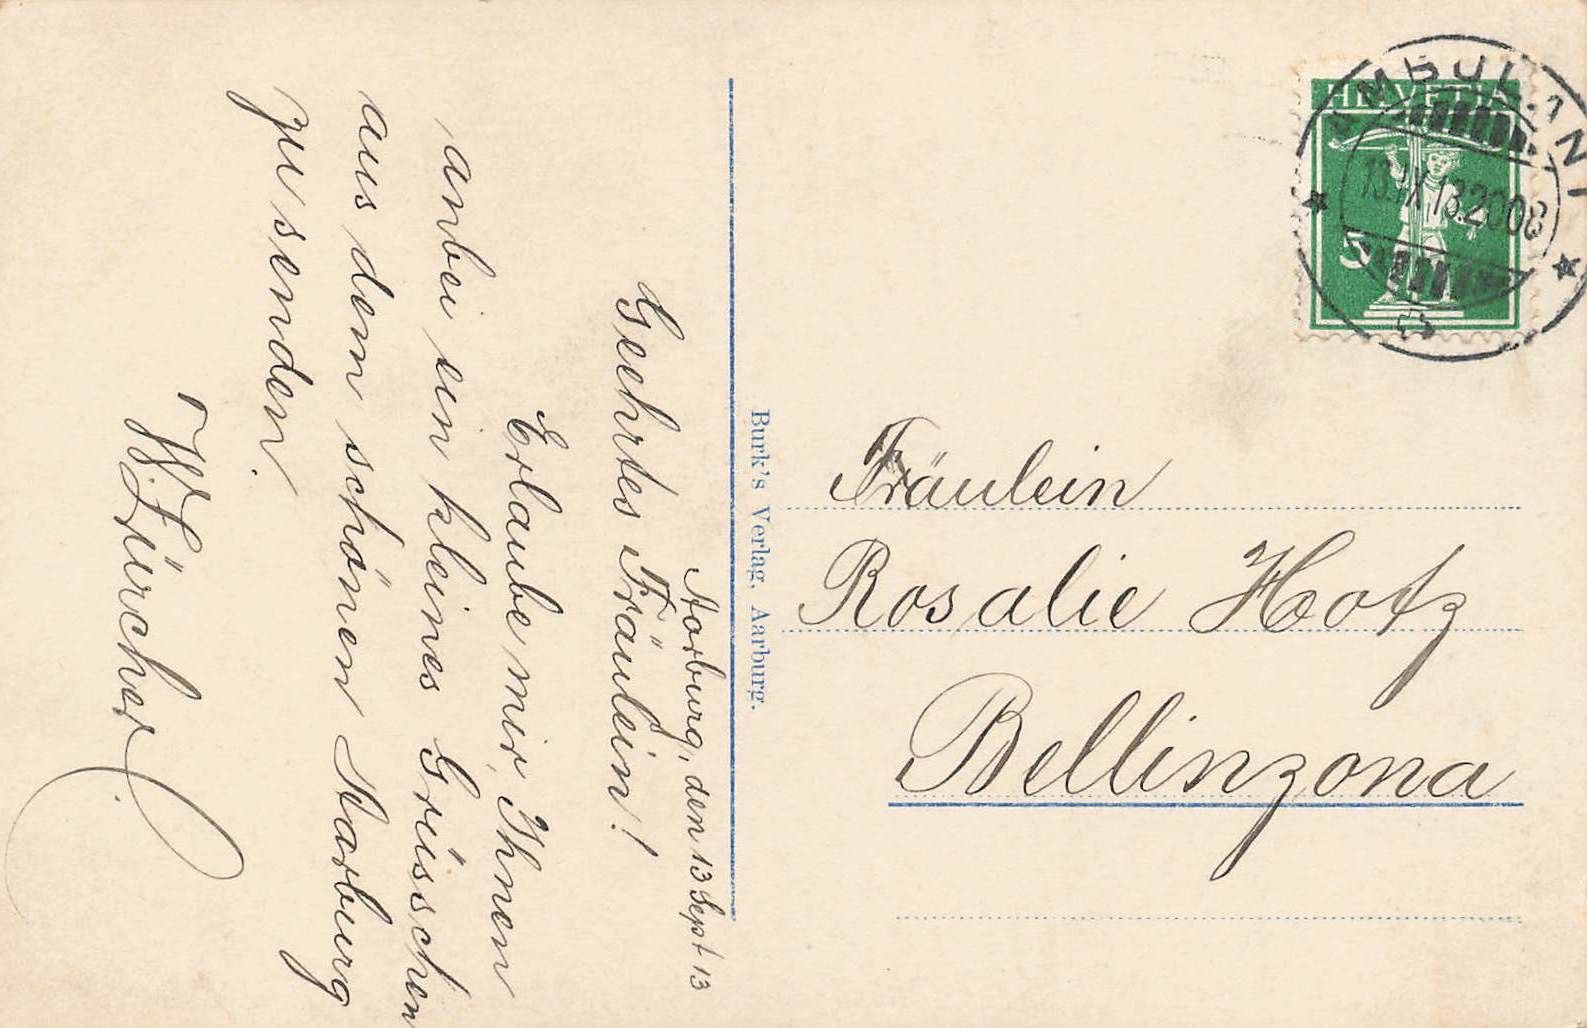 Aarburg, den 13 Sept 13
Geehrtes Fräulein!
Erlaube mir, Ihnen
anbei ein kleines Grüsschen
aus dem schönen Aarburg
zu senden.
W. Zürcher.
Burk's Verlag, Aarburg.
HELVETIA
5
AMBULANT
13.IX.13.2008
Fräulein
Rosalie Hotz
Bellinzona